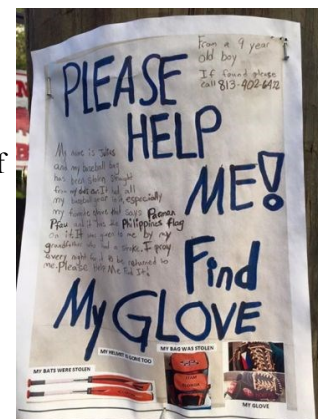 From a 9 year
old boy
If found please
call 813-402-6412
PLEASE
HELP
ME!
Find
My GLOVE
f
My name is
and my baseball bag
has been stolen
from my It had all
my baseball gear in it, especially
my favorite glove that says Pacman
and it has the Philippines flag
on it. It was given to me by my
grandfather who had a stroke. I pray
every night for it to be returned to
me. Please Help Me Find It!
MY BATS WERE STOLEN
MY HELMET IS GONE TOO
MY BAG WAS STOLEN
MY GLOVE